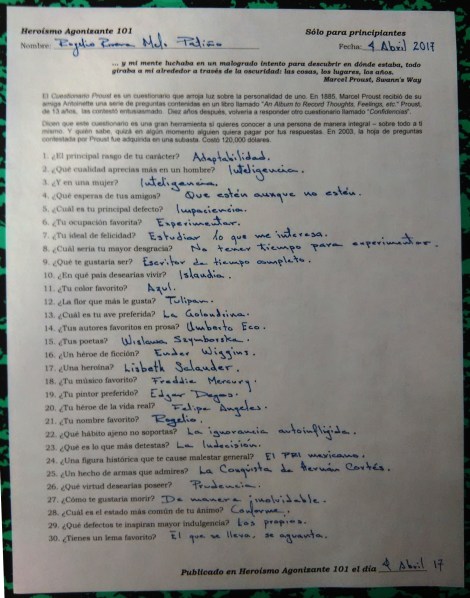 Heroísmo Agonizante 101 Sólo para principiantes
Nombre: Rogelio Rivera Melo Patiño Fecha: 4 Abril 2017
... y mi mente luchaba en un malogrado intento para descubrir en dónde estaba, todo
giraba a mi alrededor a través de la oscuridad: las cosas, los lugares, los años.
Marcel Proust, Swann's Way
El Cuestionario Proust es un cuestionario que arroja luz sobre la personalidad de uno. En 1885, Marcel Proust recibió de su
amiga Antoinette una serie de preguntas contenidas en un libro llamado "An Album to Record Thoughts, Feelings, etc." Proust,
de 13 años, las contestó entusiasmado. Diez años después, volvería a responder otro cuestionario llamado "Confidencias".
Dicen que este cuestionario es una gran herramienta si quieres conocer a una persona de manera integral – sobre todo a ti
mismo. Y quién sabe, quizá en algún momento alguien quiera pagar por tus respuestas. En 2003, la hoja de preguntas
contestada por Proust fue adquirida en una subasta. Costó 120,000 dólares.
1. ¿El principal rasgo de tu carácter? Adaptabilidad.
2. ¿Qué cualidad aprecias más en un hombre? Inteligencia.
3. ¿Y en una mujer? Inteligencia.
4. ¿Qué esperas de tus amigos? Que estén aunque no estén.
5. ¿Cuál es tu principal defecto? Impaciencia.
6. ¿Tu ocupación favorita? Experimentar.
7. ¿Tu ideal de felicidad? Estudiar lo que me interesa.
8. ¿Cuál sería tu mayor desgracia? No tener tiempo para experimentar.
9. ¿Qué te gustaría ser? Escritor de tiempo completo.
10. ¿En qué país desearías vivir? Islandia.
11. ¿Tu color favorito? Azul.
12. ¿La flor que más le gusta? Tulipan.
13. ¿Cuál es tu ave preferida? La Golondrina.
14. ¿Tus autores favoritos en prosa? Umberto Eco.
15. ¿Tus poetas? Wislawa Szymborska.
16. ¿Un héroe de ficción? Ender Wiggins.
17. ¿Una heroína? Lisbeth Salander.
18. ¿Tu músico favorito? Freddie Mercury.
19. ¿Tu pintor preferido? Edgar Degas.
20. ¿Tu héroe de la vida real? Felipe Angeles.
21. ¿Tu nombre favorito? Rogelio.
22. ¿Qué hábito ajeno no soportas? La ignorancia autoinfligida.
23. ¿Qué es lo que más detestas? La Indecisión.
24. ¿Una figura histórica que te cause malestar general? El PRI mexicano.
25. ¿Un hecho de armas que admires? La Conquista de Hernán Cortés.
26. ¿Qué virtud desearías poseer? Prudencia.
27. ¿Cómo te gustaría morir? De manera inolvidable.
28. ¿Cuál es el estado más común de tu ánimo? Conforme.
29. ¿Qué defectos te inspiran mayor indulgencia? Los propios.
30. ¿Tienes un lema favorito? El que se lleva, se aguanta.
Publicado en Heroísmo Agonizante 101 el día 4 Abril 17